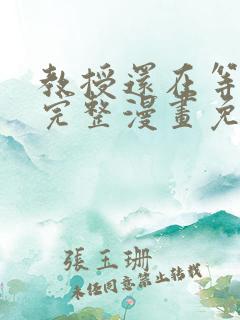 教授還在等
完整漫畫免
張玉珊
未經同意禁止轉載